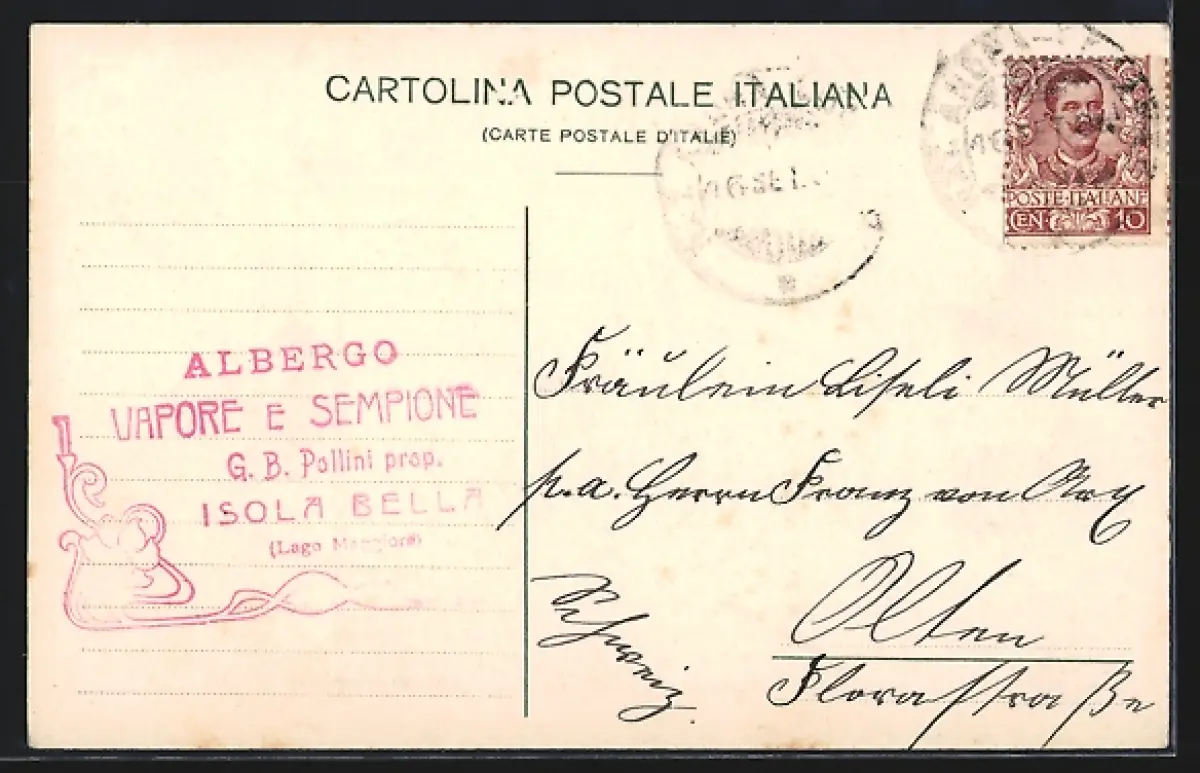 CARTOLINA POSTALE ITALIANA
(CARTE POSTALE D'ITALIE)
POSTE·ITALIANE
CEN· 10
ALBERGO
VAPORE E SEMPIONE
G. B. Pollini prop.
ISOLA BELLA
(Lago Maggiore)
Fräulein Liseli Müller
p. a. Herrn Franz von Arx
Olten
Schweiz.
Florastraße